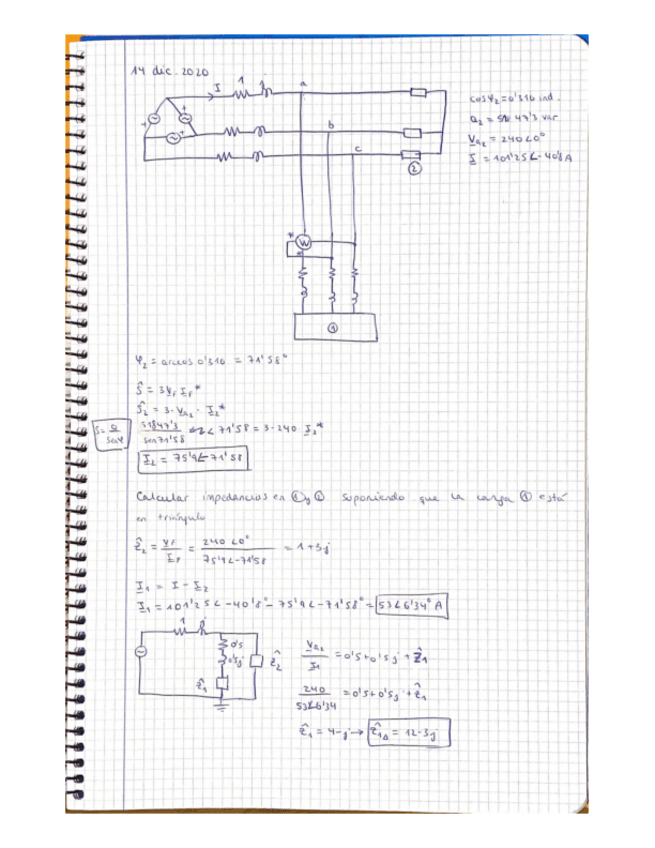 14 dic. 2020
I
1
a
b
c
cosφ₂ = 0'316 ind.
V̲a₂ = 240∠0°
I̲ = 101'25∠-40'8 A
②
W
①
φ₂ = arccos 0'316 = 71'58°
Ŝ = 3V̲F I̲F*
Ŝ₂ = 3·V̲a₂ · I̲₂*
S = Q / senφ
51847'3 / sen71'58 ∠71'58 = 3·240 I̲₂*
I̲₂ = 75'9∠-71'58
Calcular impedancias en ① y ② suponiendo que la carga ① está
en triángulo
Ẑ₂ = V̲F / I̲F = 240∠0° / 75'9∠-71'58 = 1+3j
I̲₁ = I̲ - I̲₂
I̲₁ = 101'25∠-40'8° - 75'9∠-71'58° = 53∠6'34° A
1
0'5
0'5j
Ẑ₂
Ẑ₁
V̲a₂ / I̲₁ = 0'5+0'5j + Ẑ₁
240 / 53∠6'34 = 0'5+0'5j + Ẑ₁
Ẑ₁ = 4-j → Ẑ₁Δ = 12-3j